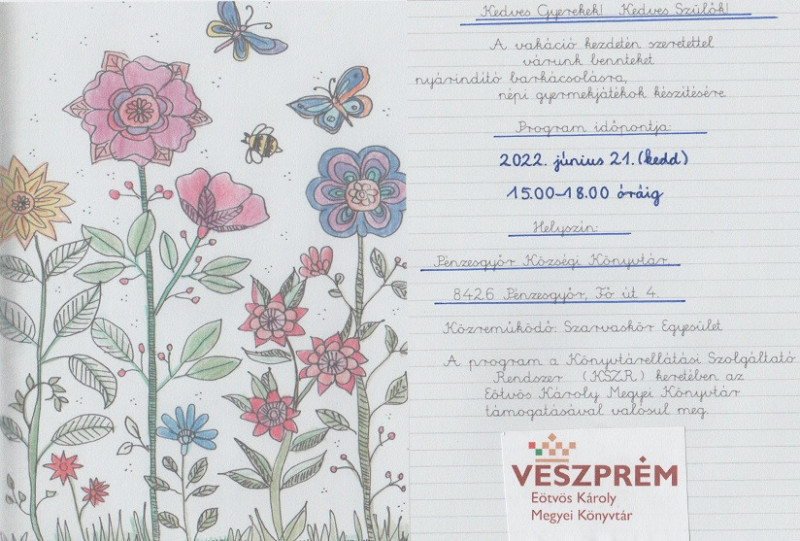 Kedves Gyerekek! Kedves Szülők!
A vakáció kezdetén szeretettel
várunk bennteket
nyárindító barkácsolásra,
népi gyermekjátékok készítésére
Program időpontja:
2022. június 21. (kedd)
15.00-18.00 óráig
Helyszín:
Pénzesgyőr Községi Könyvtár
8426 Pénzesgyőr, Fő út 4.
Közreműködő: Szarvaskör Egyesület
A program a Könyvtárellátási Szolgáltató
Rendszer (KSZR) keretében az
Eötvös Károly Megyei Könyvtár
támogatásával valósul meg.
VESZPRÉM
Eötvös Károly
Megyei Könyvtár